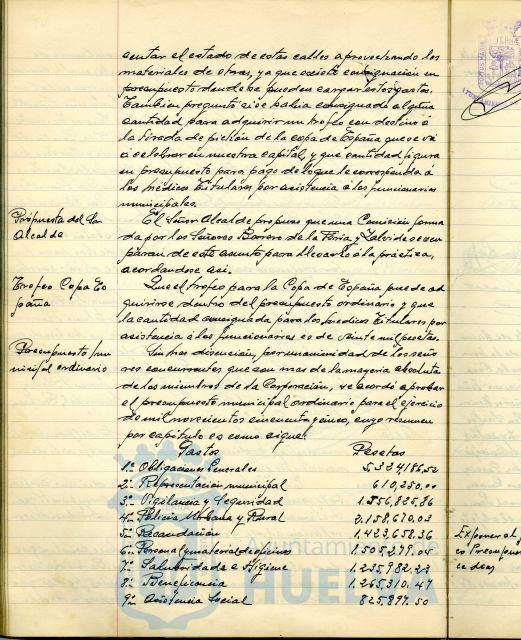 sentar el estado de estas calles aprovechando los
materiales de otras, ya que existe consignación en
presupuesto donde se pueden cargar estos gastos.
Tambien preguntó si se habia consignado alguna
cantidad para adquirir un trofeo con destino á
la tirada de pichón de la copa de España que se vá
á celebrar en nuestra capital, y que cantidad figura
en presupuesto para pago de lo que le corresponda á
los Médicos Titulares por asistencia á los funcionarios
municipales.
Propuesta del Sr.
Alcalde
El Señor Alcalde propuso que una Comisión forma
da por los Señores Borrero de la Feria y Zalvide se ocu
paran de este asunto para llevarlo á la práctica,
acordandose asi.
Trofeo Copa Es
paña
Que el trofeo para la Copa de España puede ad
quirirse dentro del presupuesto ordinario y que
la cantidad consignada para los Médicos Titulares por
asistencia á los funcionarios es de veinte mil pesetas.
Presupuesto mu
nicipal ordinario
Sin mas discusión, por unanimidad de los seño
res concurrentes que son mas de la mayoria absoluta
de los miembros de la Corporación, se acordó aprobar
el presupuesto municipal ordinario para el ejercicio
de mil novecientos cincuenta y cinco, cuyo resumen
por capítulo es como sigue:
Gastos Pesetas
1º Obligaciones Generales 5.324,186,52
2º Representación municipal 610,250.00
3º Vigilancia y Seguridad 1.556,825,86
4º Policia Urbana y Rural 2.158,670.03
5º Recaudación 1.423,658.36
6º Personal y material de oficinas 1.505,279.05
7º Salubridad e Higiene 1.235,782.23
8º Beneficencia 1.265,310.47
9º Asistencia Social 825,897.50
Ayuntamiento de
HUELVA